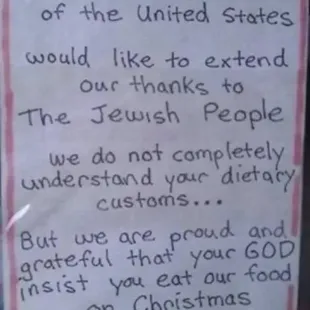 of the United States
would like to extend
our thanks to
The Jewish People
we do not completely
understand your dietary
customs...
But we are proud and
grateful that your GOD
insist you eat our food
on Christmas